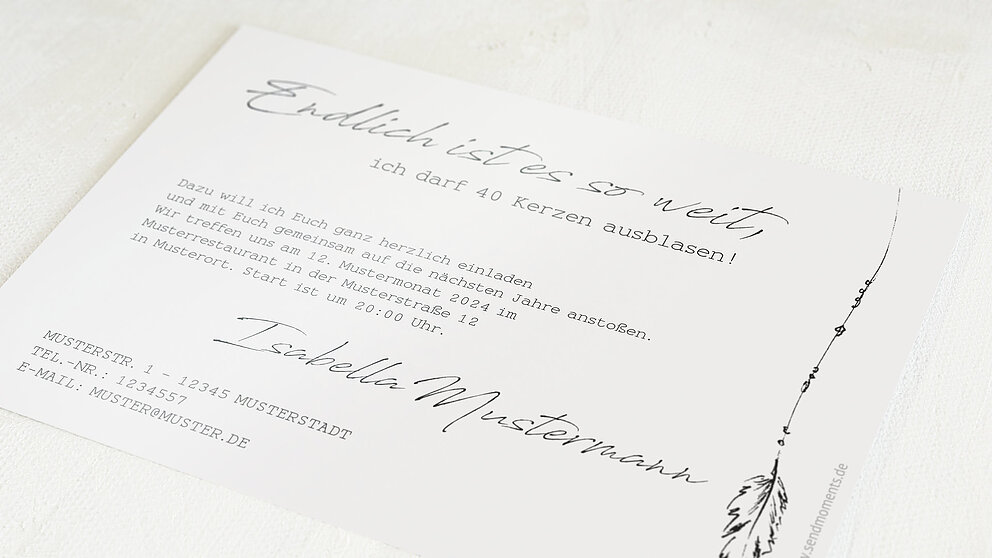 Endlich ist es so weit,
ich darf 40 Kerzen ausblasen!
Dazu will ich Euch ganz herzlich einladen
und mit Euch gemeinsam auf die nächsten Jahre anstoßen.
Wir treffen uns am 12. Mustermonat 2024 im
Musterrestaurant in der Musterstraße 12
in Musterort. Start ist um 20:00 Uhr.
Isabella Mustermann
MUSTERSTR. 1 - 12345 MUSTERSTADT
TEL.-NR.: 1234557
E-MAIL: MUSTER@MUSTER.DE
.sendmoments.de